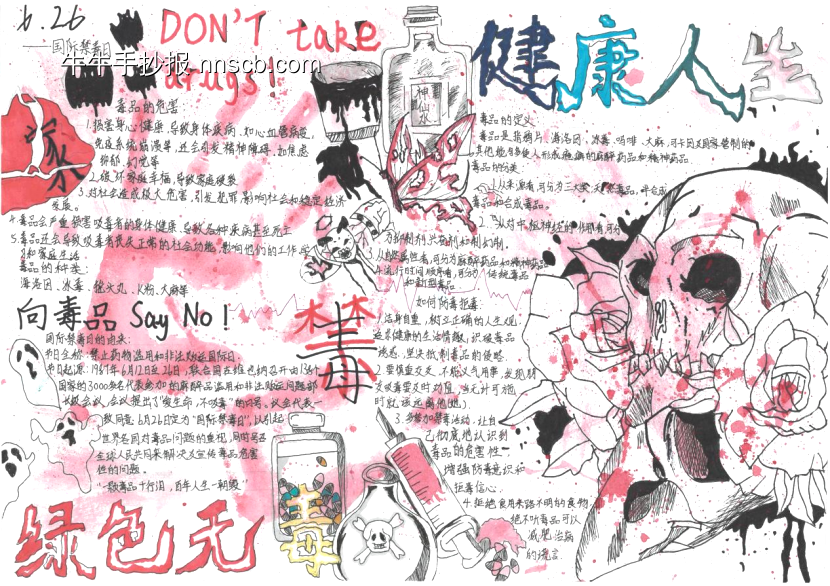 6.26
——国际禁毒日
DON'T take
drugs!
牛牛手抄报 nnscb.com
健康人生
家
神仙水
毒品的危害
1.损害身心健康,导致身体疾病,如心血管病变,
免疫系统崩溃等,还会引发精神障碍,如焦虑
抑郁、幻觉等
2.破坏家庭幸福,导致家庭破裂
3.对社会造成极大危害,引发犯罪,影响社会和稳定经济
发展。
4.毒品会严重损害吸毒者的身体健康,导致各种疾病甚至死亡
5.毒品还会导致吸毒者丧失正常的社会功能,影响他们的工作学
习和家庭生活
毒品的种类:
海洛因、冰毒、摇头丸、K粉、大麻等
向毒品Say No!
国际禁毒日的由来:
节日全称:禁止药物滥用和非法贩运国际日
节日起源:1987年6月12日至26日,联合国在维也纳召开由138个
国家的3000多名代表参加的麻醉品滥用和非法贩运问题部
长级会议,会议提出了“爱生命,不吸毒”的口号,议会代表一
致同意6月26日定为“国际禁毒日”,以引起
世界各国对毒品问题的重视,同时号召
全球人民共同来解决及宣传毒品危害
性的问题。
“一数毒品十行泪,百年人生一朝毁”
绿色无
毒
禁毒
毒品的定义
毒品是指鸦片、海洛因、冰毒、吗啡、大麻,可卡因及国家管制的
其他能够使人形成瘾癖的麻醉药品和精神药品
毒品的分类
1.从来源看,可分为三大类,天然毒品,半合成
毒品和合成毒品。
2.从对中枢神经的作用看,可分
为抑制剂,兴奋剂和制幻剂。
3.从自然属性看,可分为麻醉药品和精神药品
4.流行时间顺序看,可分为传统毒品
和新型毒品
如何防毒拒毒:
1.洁身自重,树立正确的人生观
培养健康的生活情趣,识破毒品
诱惑,坚决抵制毒品的侵害
2.要慎重交友,不能义气用事,发现朋
友吸毒要及时劝阻,当无计可施
时就该远离他(她)。
3.多参加禁毒活动,让自
己彻底地认识到
毒品的危害性
增强防毒意识和
拒毒信心。
4.拒绝食用来路不明的食物
绝不听毒品可以
减肥治病
的谎言。